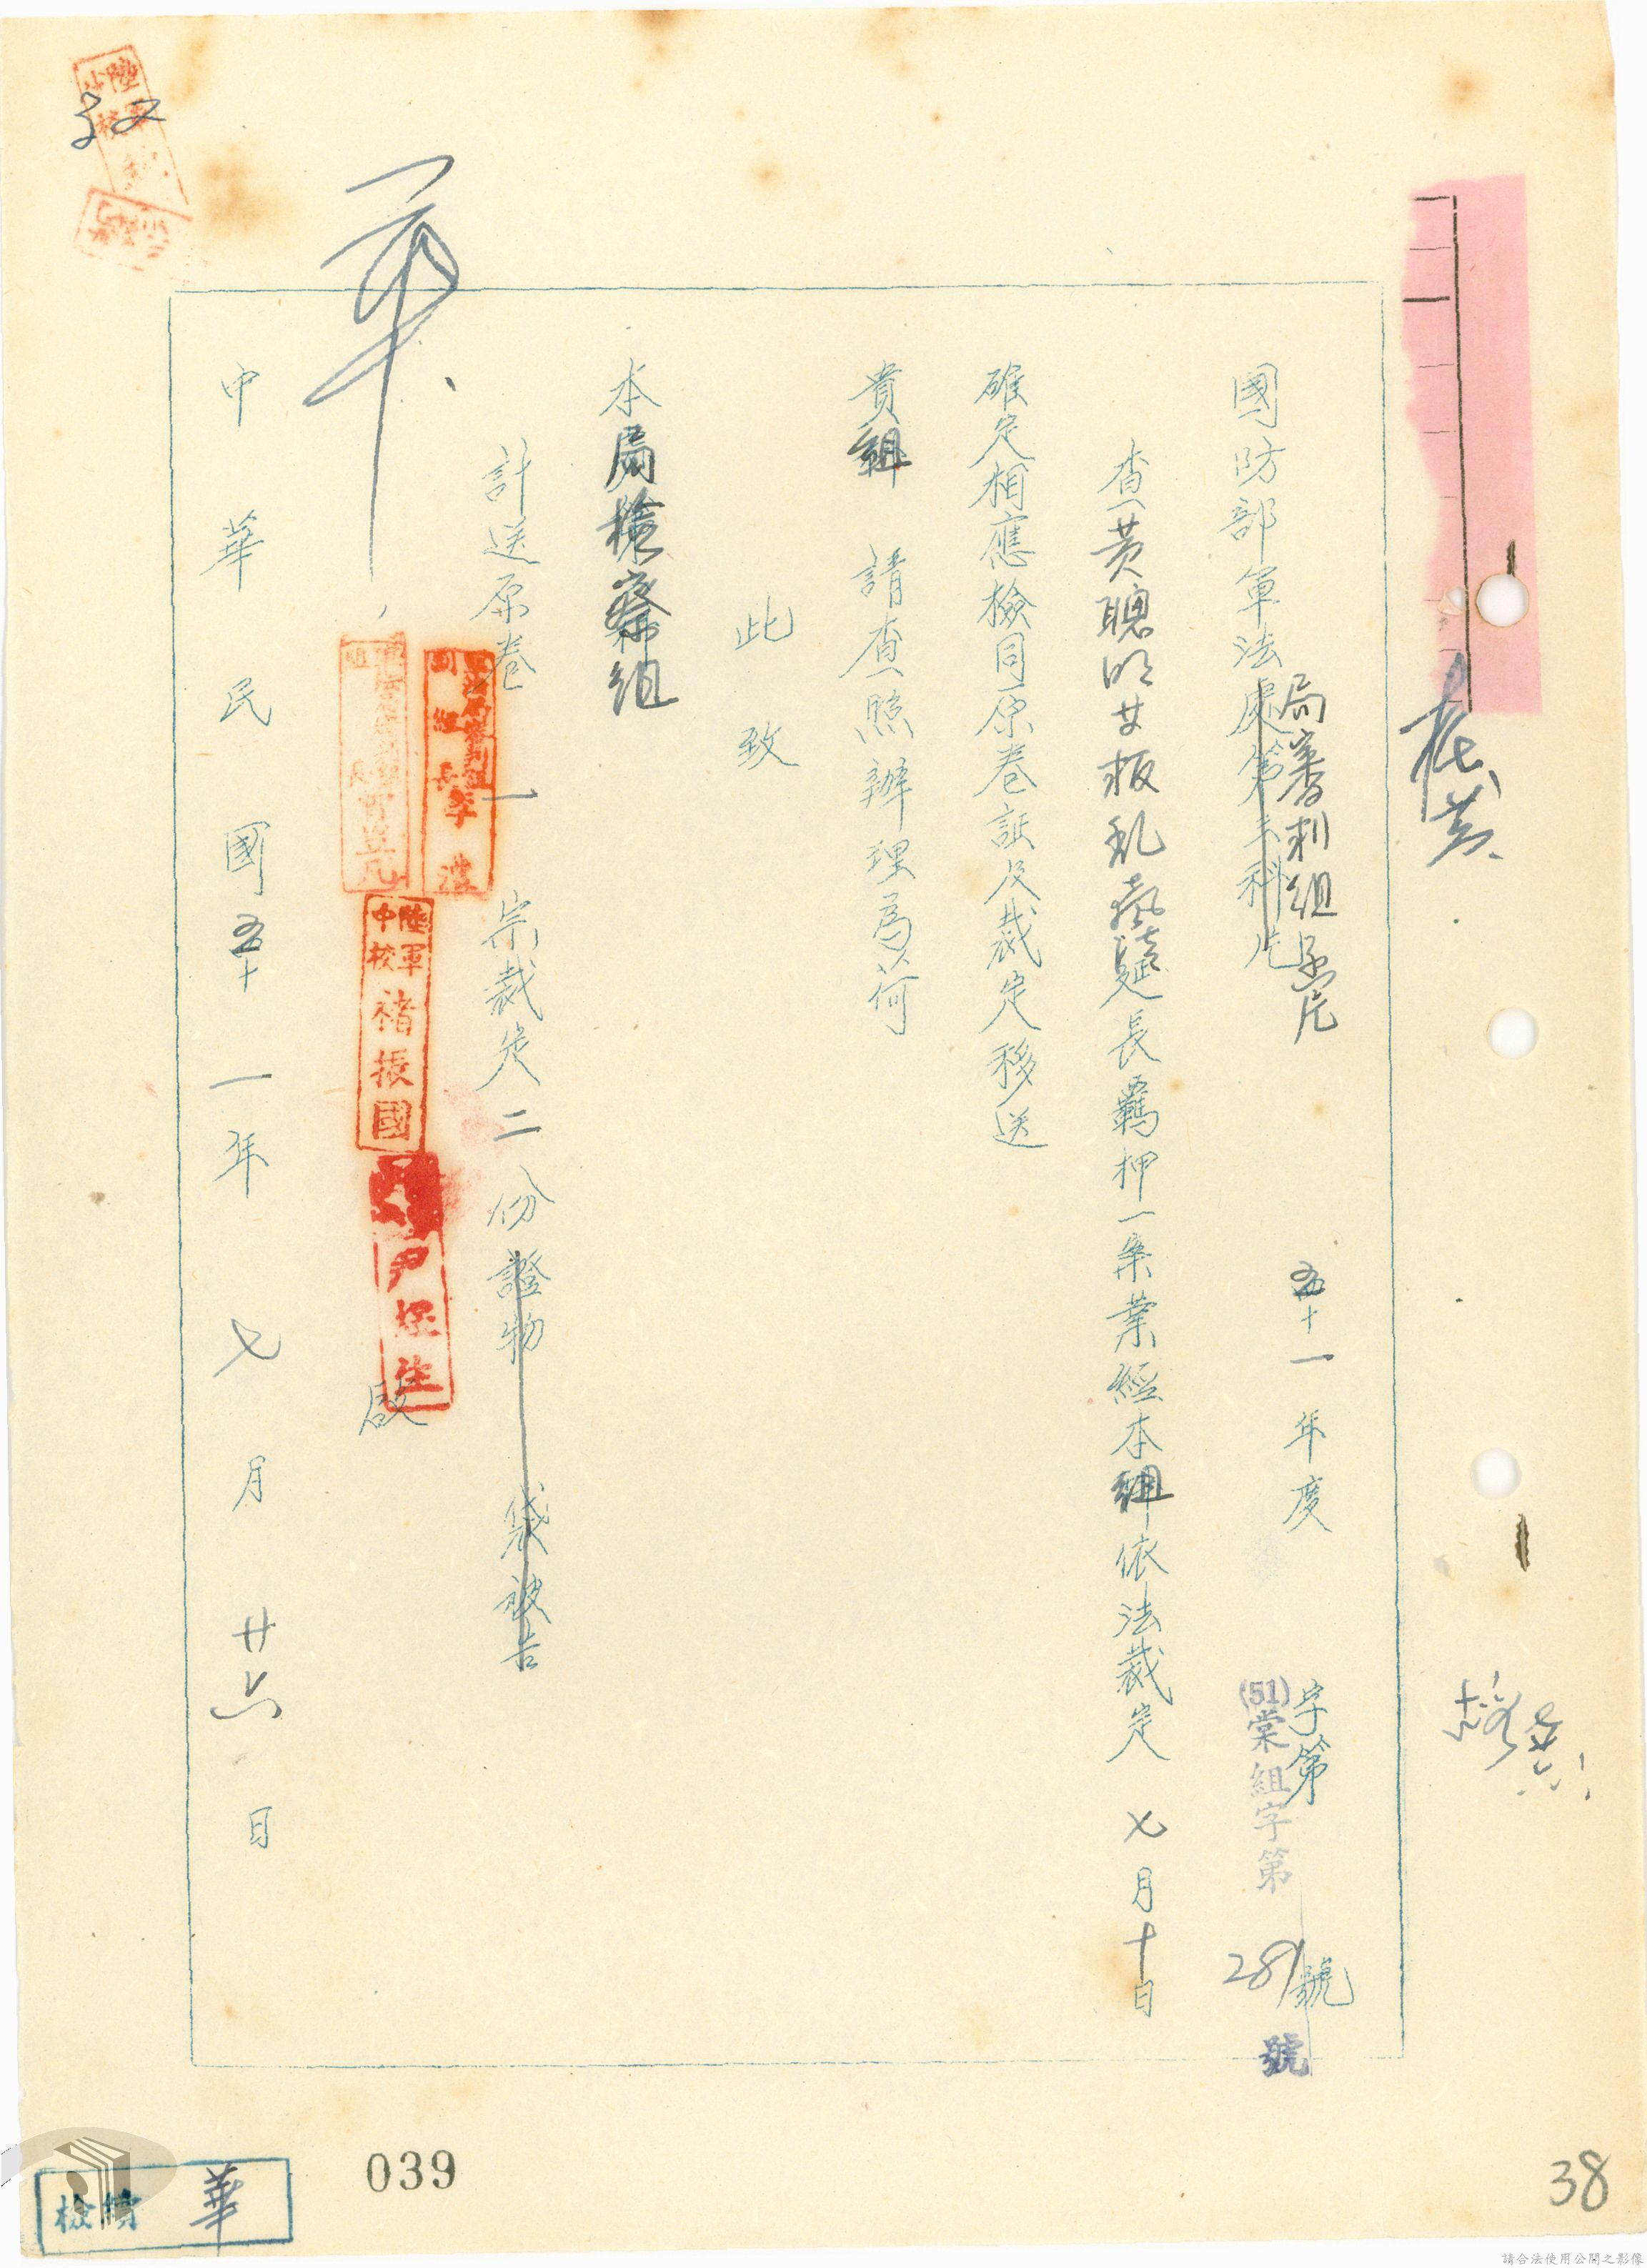 國防部軍法處第三科片
局審判組函片
五十一年度
字第
號
(51)棠組字第
281
號
查黃聰明廿叛亂嫌疑延長羈押一案業經本組依法裁定 七月十日
確定相應檢同原卷証及裁定移送
貴組 請查照辦理為荷
此致
本局檢察組
計送原卷 一 宗裁定二份證物 袋被告
陸軍中校褚振國
啟
中華民國五十一年七月廿六日
039
38
華
請合法使用公開之影像